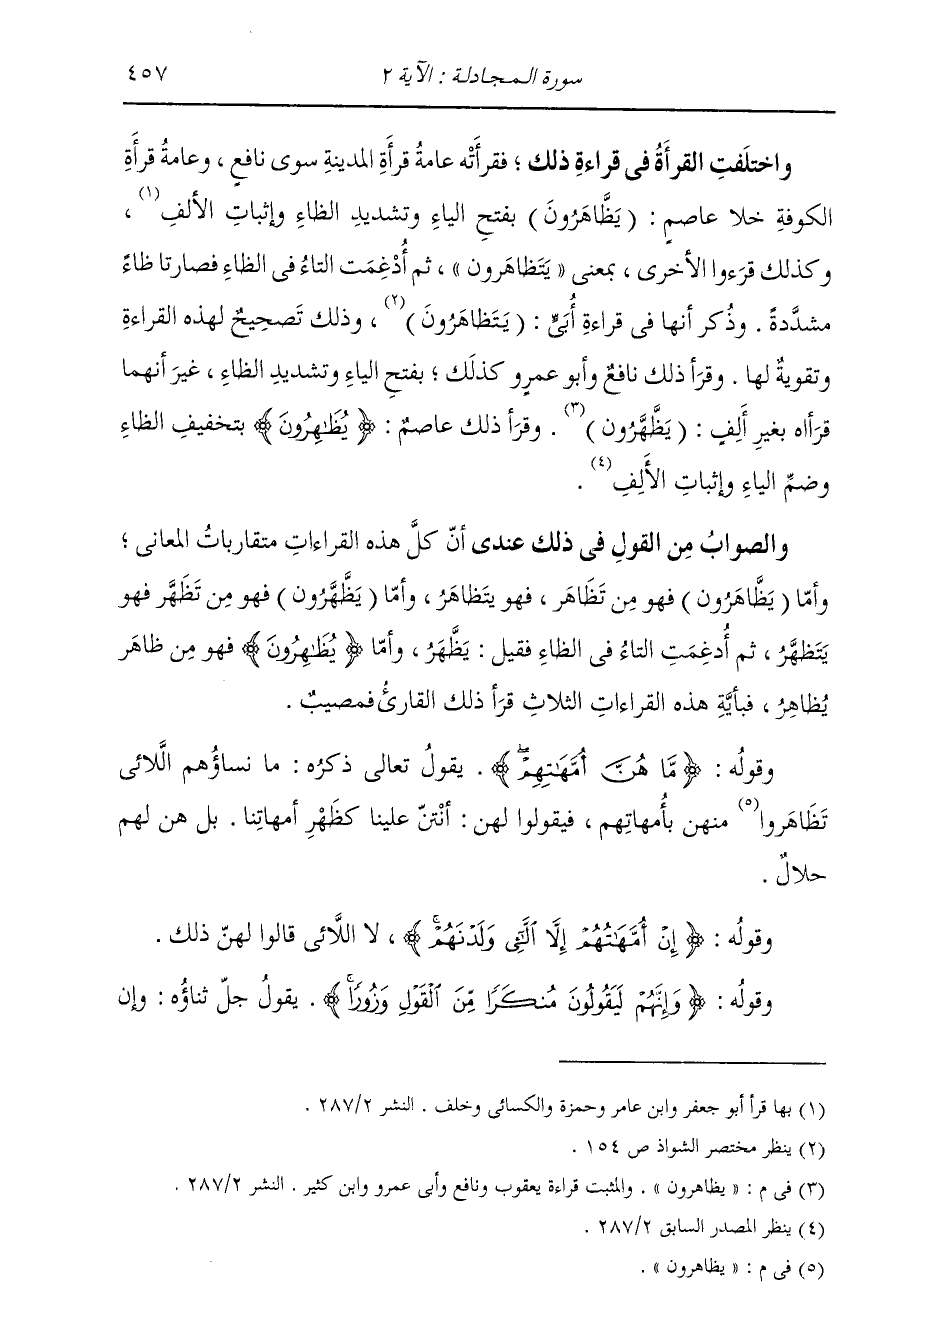 سورة المجادلة : الآية ٢
٤٥٧
واختلَفتِ القرأَةُ فى قراءةِ ذلك ؛ فقرأَتْه عامةُ قرأَةِ المدينةِ سوى نافعٍ ، وعامةُ قرأَةِ
الكوفةِ خلا عاصمٍ : ( يَظَّاهَرُونَ ) بفتحِ الياءِ وتشديدِ الظاءِ وإثباتِ الألفِ(١) ،
وكذلك قرَءوا الأخرى ، بمعنى « يَتَظاهَرون » ، ثم أُدْغِمَت التاءُ فى الظاءِ فصارتا ظاءً
مشدَّدةً . وذُكر أنها فى قراءةِ أُبَىٍّ : ( يَتَظاهَرُونَ )(٢) ، وذلك تَصحِيحٌ لهذه القراءةِ
وتقويةٌ لها . وقرَأ ذلك نافعٌ وأبو عمرٍو كذلَك ؛ بفتحِ الياءِ وتشديدِ الظاءِ ، غيرَ أنهما
قرَأاه بغيرِ أَلِفٍ : ( يَظَّهَّرُون )(٣) . وقرَأ ذلك عاصمٌ : ﴿ يُظَٰهِرُونَ ﴾ بتخفيفِ الظاءِ
وضمِّ الياءِ وإثباتِ الأَلِفِ(٤) .
والصوابُ مِن القولِ فى ذلك عندى أنّ كلَّ هذه القراءاتِ متقارباتُ المعانى ؛
وأمّا ( يَظَّاهَرُون ) فهو مِن تَظَاهَر ، فهو يتَظاهَرُ ، وأمّا ( يَظَّهَّرُون ) فهو مِن تَظَهَّر فهو
يَتَظهَّرُ ، ثم أُدغِمَتِ التاءُ فى الظاءِ فقيل : يَظَّهَّرُ ، وأمّا ﴿ يُظَٰهِرُونَ ﴾ فهو مِن ظاهَر
يُظاهِرُ ، فبأيَّةِ هذه القراءاتِ الثلاثِ قرَأ ذلك القارئُ فمصيبٌ .
وقولُه : ﴿ مَّا هُنَّ أُمَّهَٰتِهِمْۖ ﴾ . يقولُ تعالى ذكرُه : ما نساؤُهم الَّلائى
تَظَاهَروا(٥) منهن بأُمهاتِهم ، فيقولوا لهن : أنْتنّ علينا كظَهْرِ أمهاتِنا . بل هن لهم
حلالٌ .
وقولُه : ﴿ إِنْ أُمَّهَٰتُهُمْ إِلَّا ٱلَّٰٓـِٔى وَلَدْنَهُمْۚ ﴾ ، لا اللائى قالوا لهنّ ذلك .
وقولُه : ﴿ وَإِنَّهُمْ لَيَقُولُونَ مُنكَرًا مِّنَ ٱلْقَوْلِ وَزُورًاۚ ﴾ . يقولُ جلّ ثناؤُه : وإن
(١) بها قرأ أبو جعفر وابن عامر وحمزة والكسائى وخلف . النشر ٢٨٧/٢ .
(٢) ينظر مختصر الشواذ ص ١٥٤ .
(٣) فى م : « يظاهرون » . والمثبت قراءة يعقوب ونافع وأبى عمرو وابن كثير . النشر ٢٨٧/٢ .
(٤) ينظر المصدر السابق ٢٨٧/٢ .
(٥) فى م : « يظاهرون » .